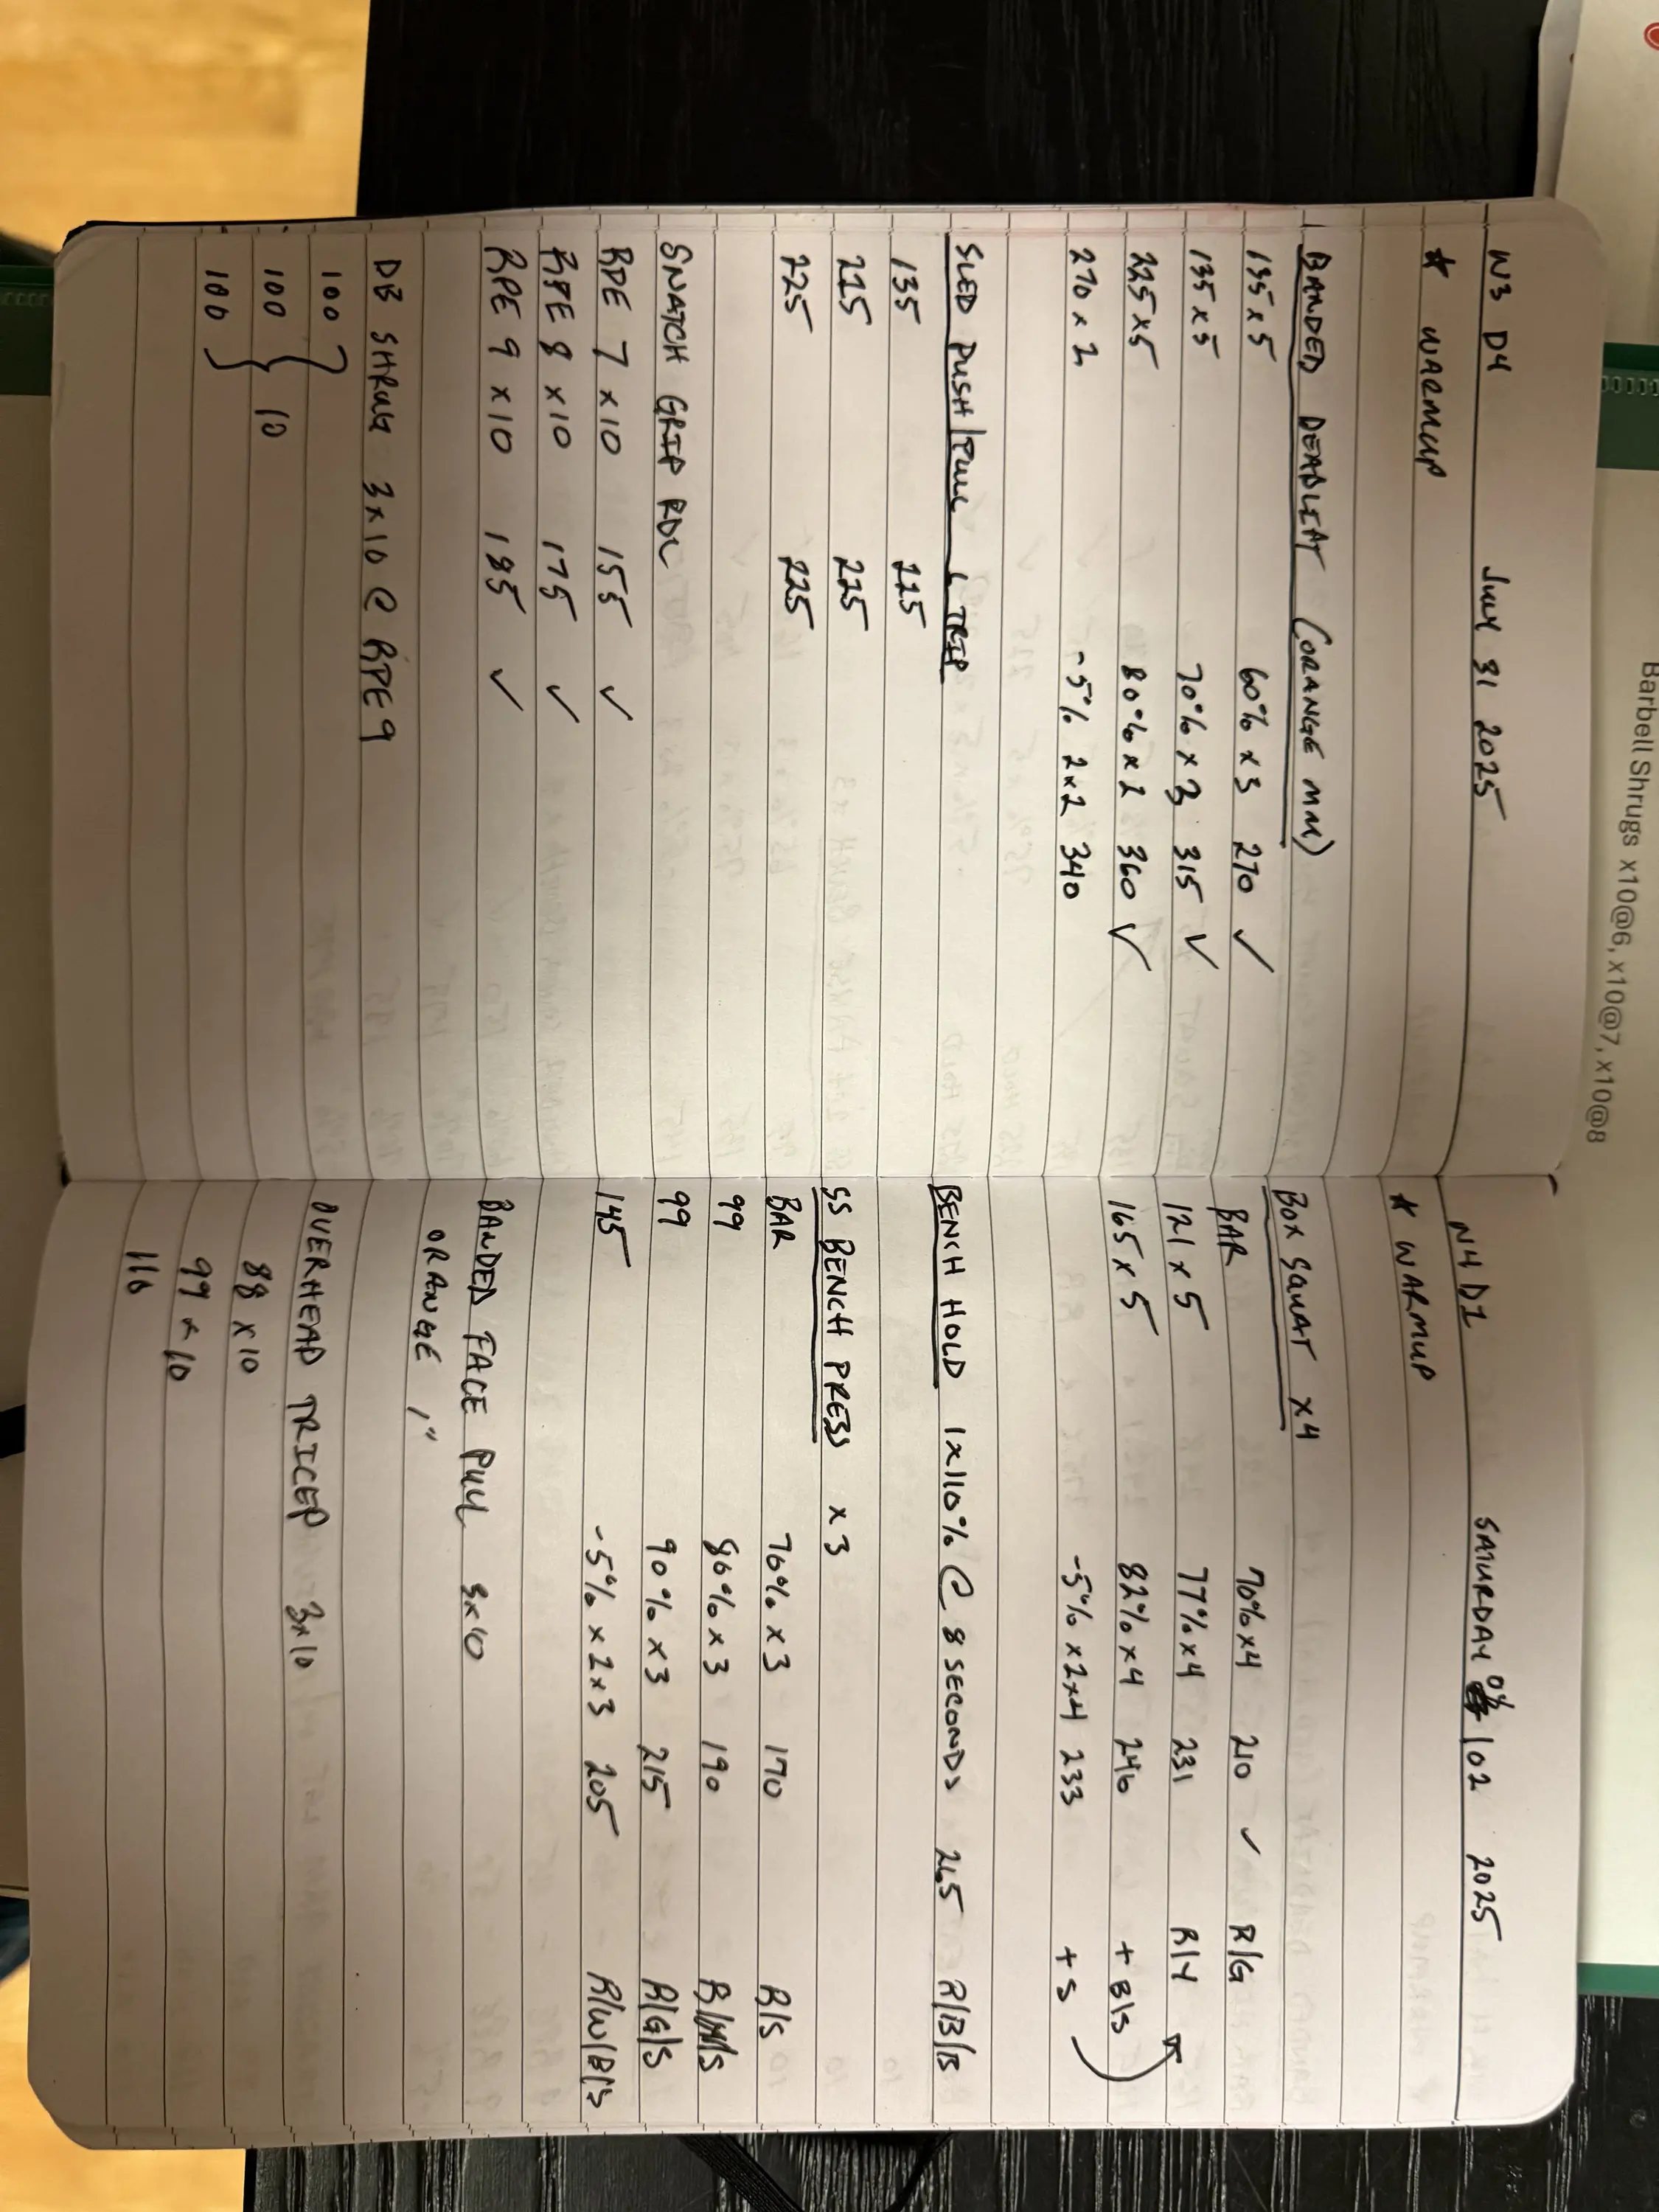 Barbell Shrugs x10@6, x10@7, x10@8
W3 D4 July 31 2025
* WARMUP
BANDED DEADLIFT (ORANGE MM)
135 x 5 60% x 3 270 ✓
135 x 5 70% x 3 315 ✓
225 x 5 80% x 2 360 ✓
270 x 2 -5% 2x2 340
SLED PUSH/PULL 6 TRIP
135 225
225 225
225 225
SNATCH GRIP RDL
RPE 7 x 10 155 ✓
RPE 8 x 10 175 ✓
RPE 9 x 10 185 ✓
DB SHRUG 3x10 @ RPE9
100
100 } 10
100
W4 D1 SATURDAY 08/02 2025
* WARMUP
BOX SQUAT x4
BAR 70%x4 210 ✓ R/G
121 x 5 77%x4 231 R/Y
165 x 5 82%x4 246 + B/S
-5% x2x4 233 + S
BENCH HOLD 1x110% @ 8 SECONDS 265 R/B/B
SS BENCH PRESS x3
BAR 70% x 3 170 B/S
99 80% x 3 190 B/S
99 90% x 3 215 R/G/S
145 -5% x 2 x 3 205 R/W/B/S
BANDED FACE PULL 3x10
ORANGE 1"
OVERHEAD TRICEP 3x10
88 x 10
99 x 10
110